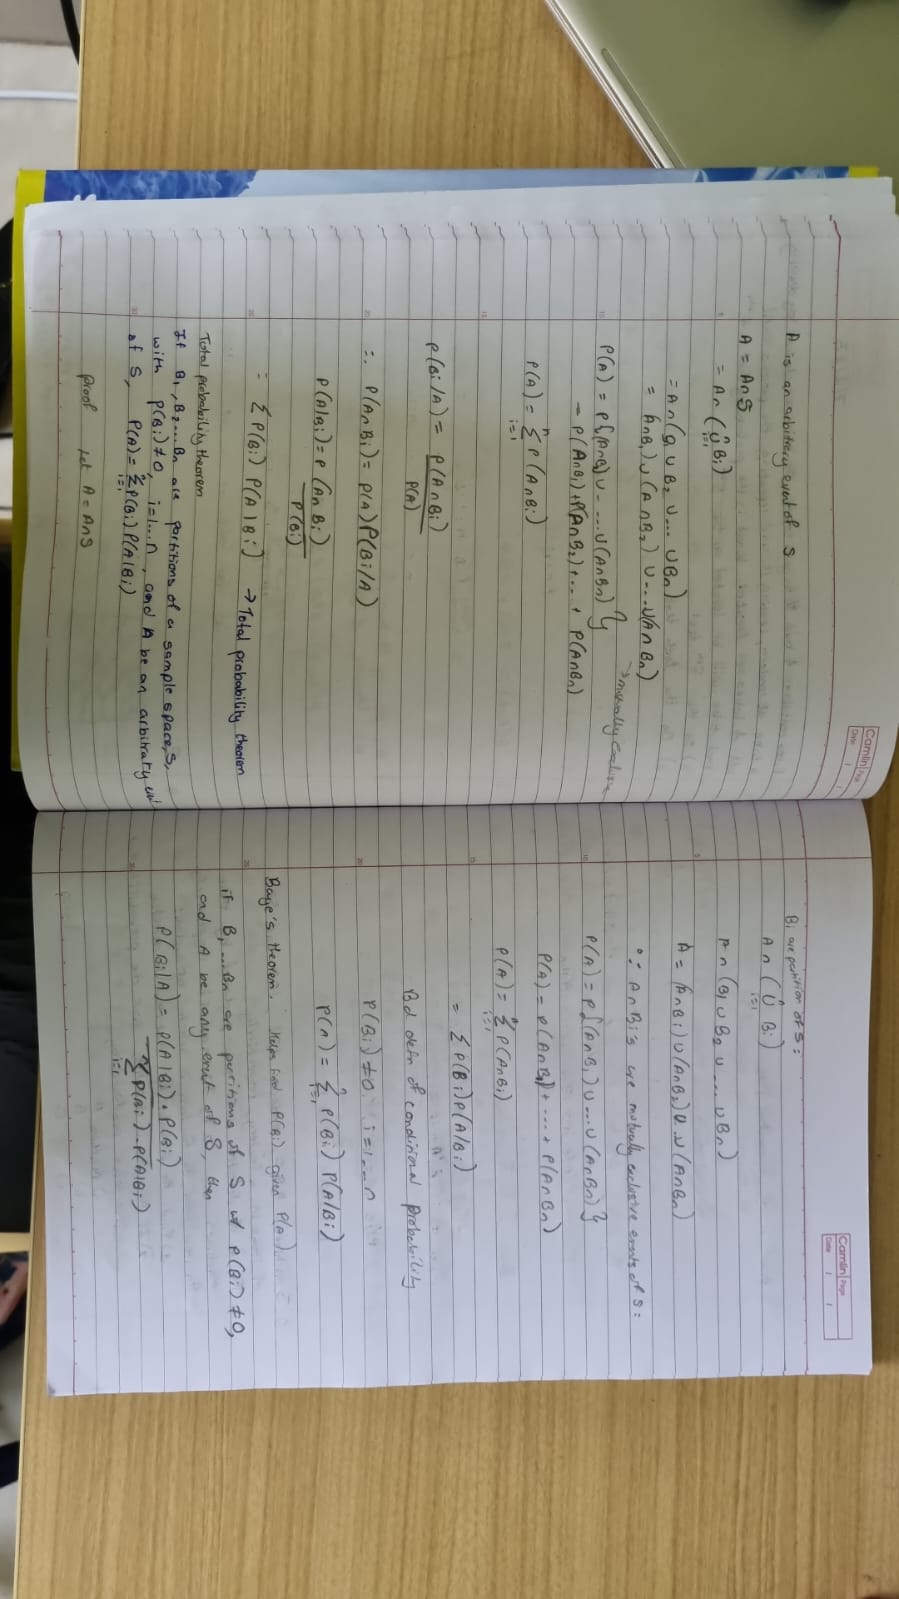 Camlin Page
Date / /
A is an arbitrary event of S
A = A∩S
= A∩(⋃ᵢ₌₁ⁿ Bᵢ)
= A∩(B₁ ∪ B₂ ∪ ... ∪ Bₙ)
= (A∩B₁) ∪ (A∩B₂) ∪ ... ∪(A∩Bₙ)
P(A) = P{(A∩B₁) ∪ .... ∪(A∩Bₙ)} → mutually exclusive
= P(A∩B₁) + P(A∩B₂) + ... + P(A∩Bₙ)
P(A) = Σᵢ₌₁ⁿ P(A∩Bᵢ)
P(Bᵢ/A) = P(A∩Bᵢ) / P(A)
∴ P(A∩Bᵢ) = P(A) P(Bᵢ/A)
P(A|Bᵢ) = P(A∩Bᵢ) / P(Bᵢ)
= Σ P(Bᵢ) P(A|Bᵢ) → Total probability theorem
Total probability theorem
If B₁, B₂ ... Bₙ are partitions of a sample space, S,
with P(Bᵢ) ≠ 0, i=1...n, and A be an arbitrary
of S, P(A) = Σᵢ₌₁ⁿ P(Bᵢ) P(A|Bᵢ)
proof let A = A∩S
Camlin Page
Date / /
Bᵢ are partition of S:
A∩(⋃ᵢ₌₁ⁿ Bᵢ)
A∩(B₁ ∪ B₂ ∪ ... ∪ Bₙ)
A = (A∩B₁) ∪ (A∩B₂) ∪ ... ∪ (A∩Bₙ)
∵ A∩Bᵢ's are mutually exclusive events of S:
P(A) = P{(A∩B₁) ∪ ... ∪ (A∩Bₙ)}
P(A) = P(A∩B₁) + .... + P(A∩Bₙ)
P(A) = Σᵢ₌₁ⁿ P(A∩Bᵢ)
= Σ P(Bᵢ) P(A/Bᵢ)
defn of conditional probability
P(Bᵢ) ≠ 0 i=1....n
P(A) = Σᵢ₌₁ⁿ P(Bᵢ) P(A/Bᵢ)
Baye's theorem: Helps find P(Bᵢ) given P(A)
if B₁ ... Bₙ are partitions of S w/ P(Bᵢ) ≠ 0,
and A be any event of S, then
P(Bᵢ|A) = P(A|Bᵢ) . P(Bᵢ) / Σᵢ₌₁ⁿ P(Bᵢ) . P(A|Bᵢ)